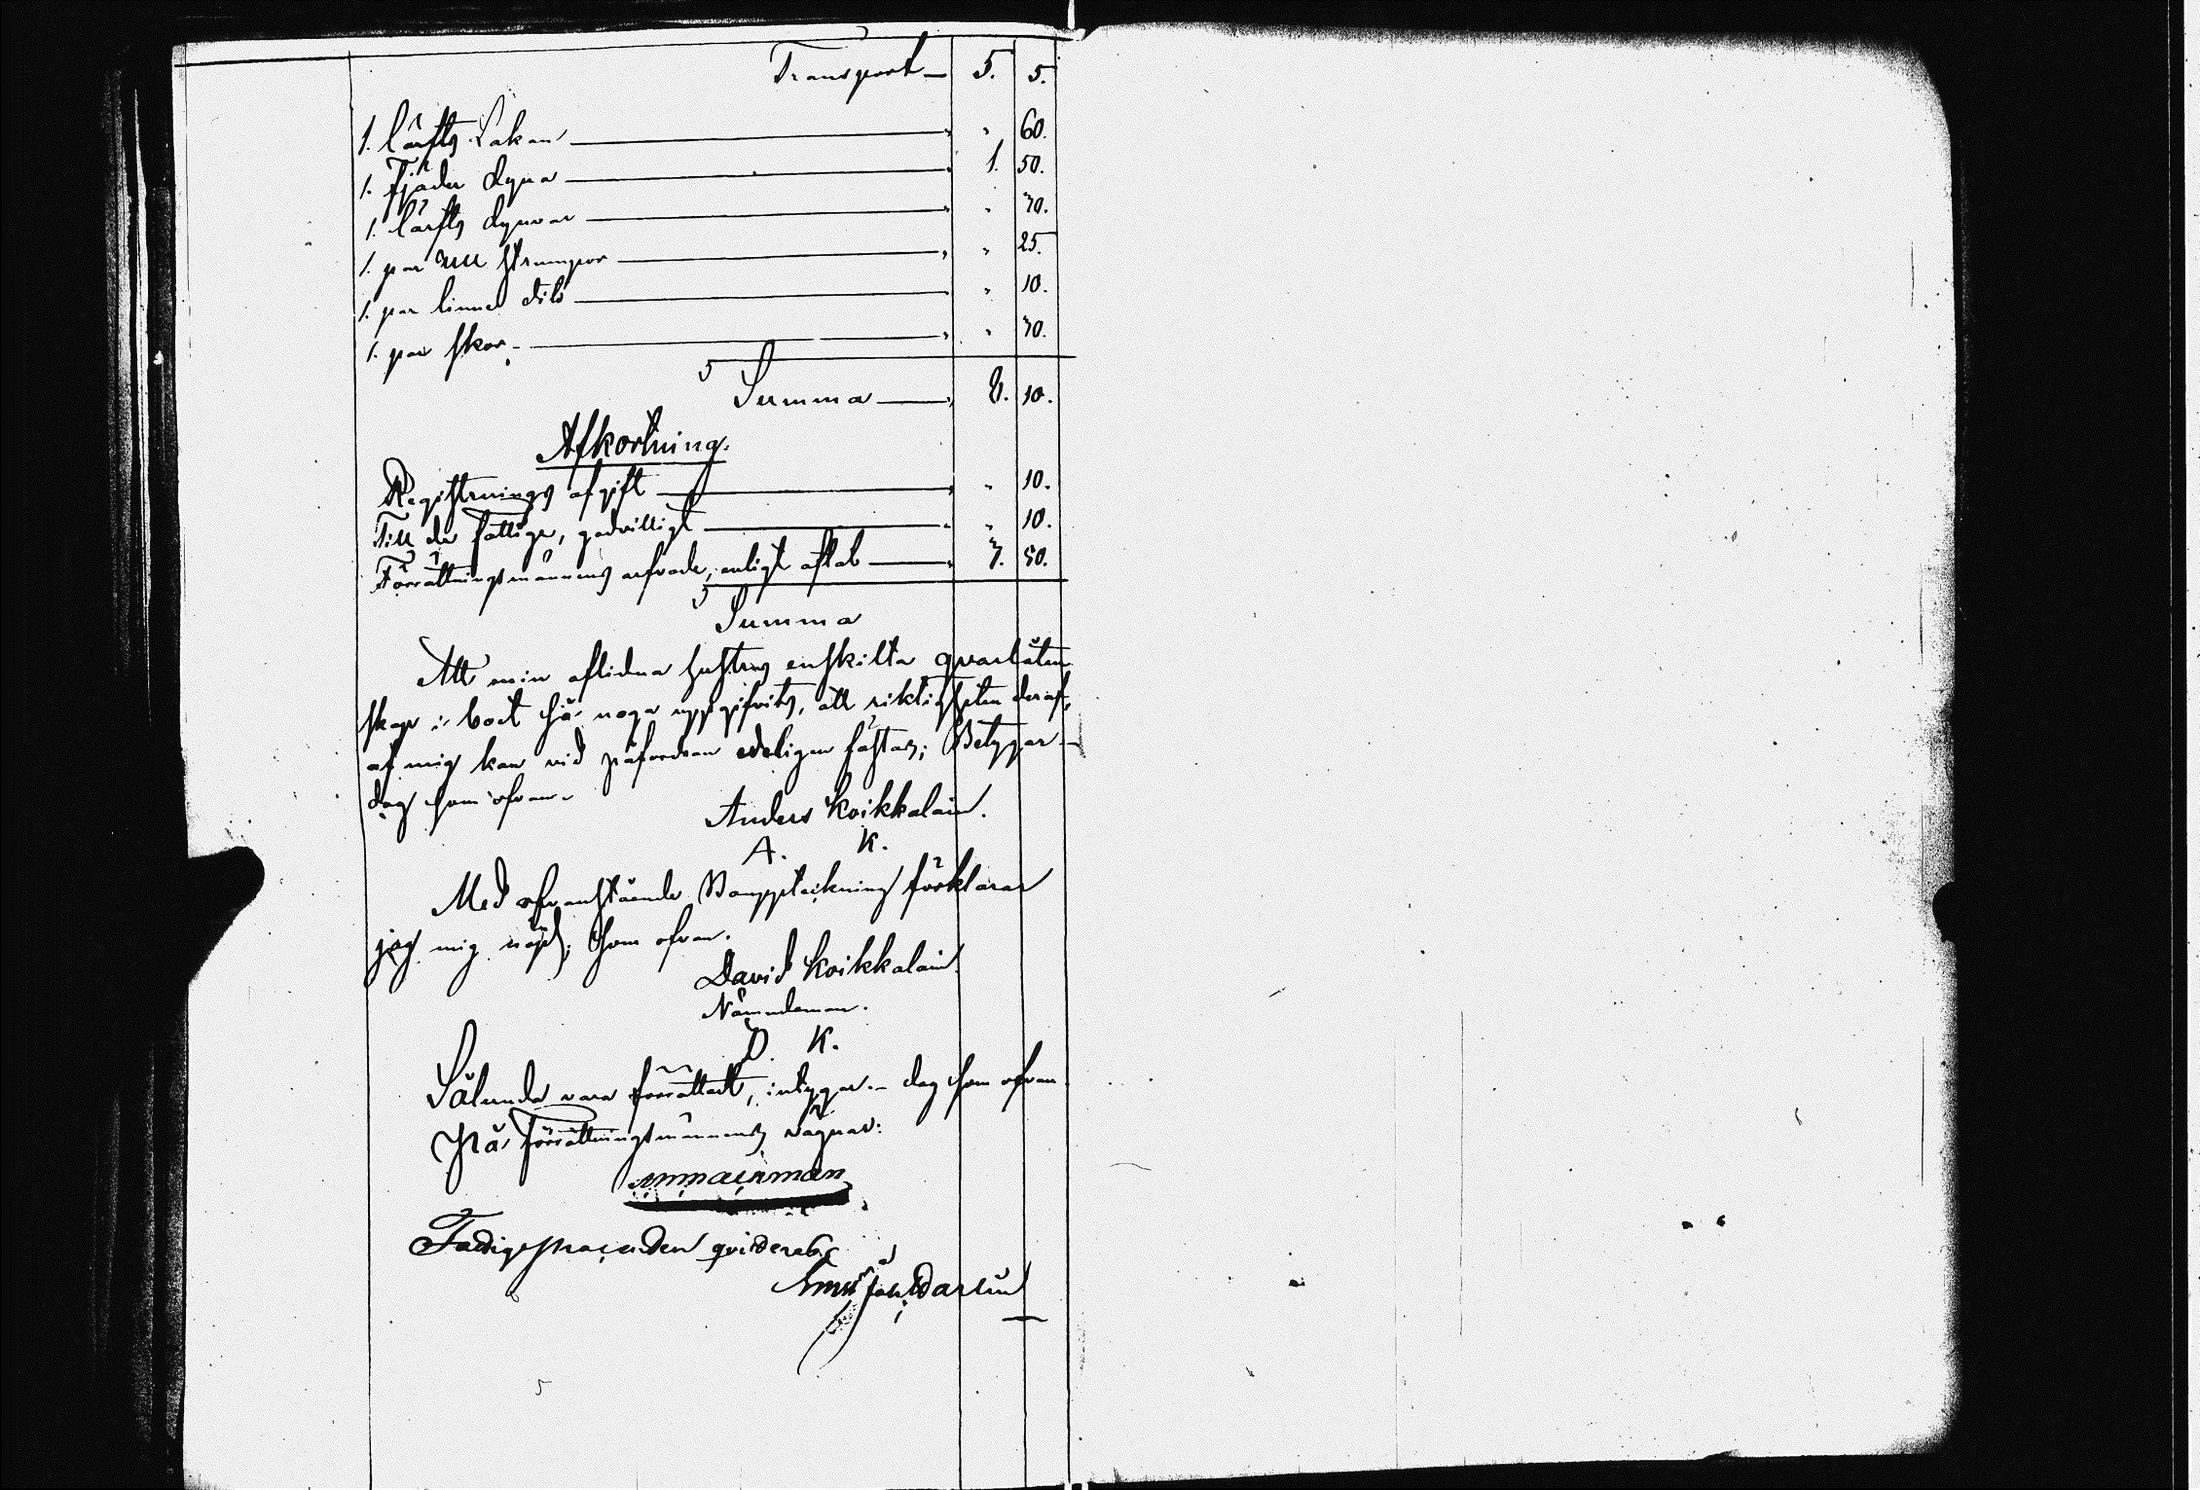 Transport 5. 5.
1. lärfts Lakan " 60.
1. Fjäder dyna 1. 50.
1. lärfts dynvar " 70.
1. par ull strumpor " 25.
1. par linne dito " 10.
1. par skor " 70.
Summa 8. 10.
Afkortning.
Registrerings afgift " 10.
Till de fattige, godvilligt " 10.
Förrättningsmännens arfvode, enligt aftal 7. 50.
Summa
Att min aflidna hustrus enskilta qvarlåten
skap i boet här noga uppgifvits, att riktigheten deraf,
af mig kan vid påfordran edeligen fästas; Betygar
dag som ofvan.
Anders Koikkalain.
A. K.
Med ofvanstående Bouppteckning förklarar
jag mig nöjd; som ofvan.
David Koikkalain
Nämndeman.
D. K.
Sålunda vara förrättadt, intygar. dag som ofvan
På Förrättningsmännens vägnar:
qvitteras